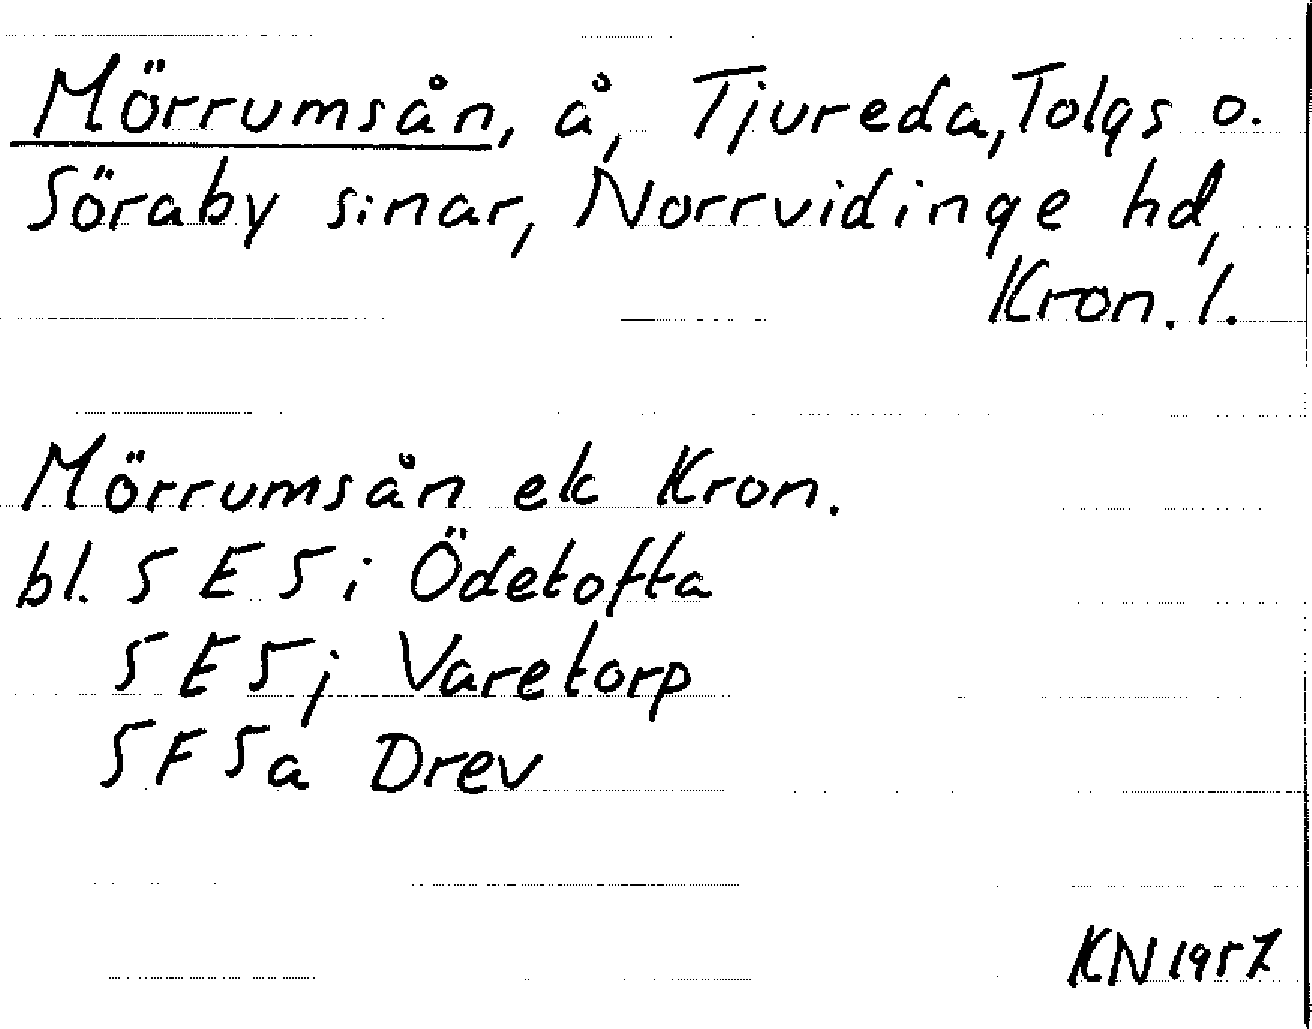 Mörrumsån, å, Tjureda, Tolgs o.
Söraby snar, Norrvidinge hd,
Kron. l.
Mörrumsån ek Kron.
bl. 5 E 5 i Ödetofta
5 E 5 j Varetorp
5 F 5 a Drev
KN 1957